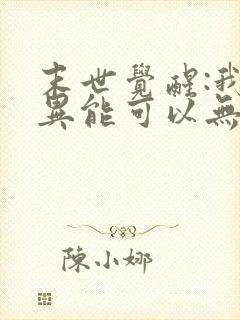 末世覺醒:我
異能可以無
陳小娜